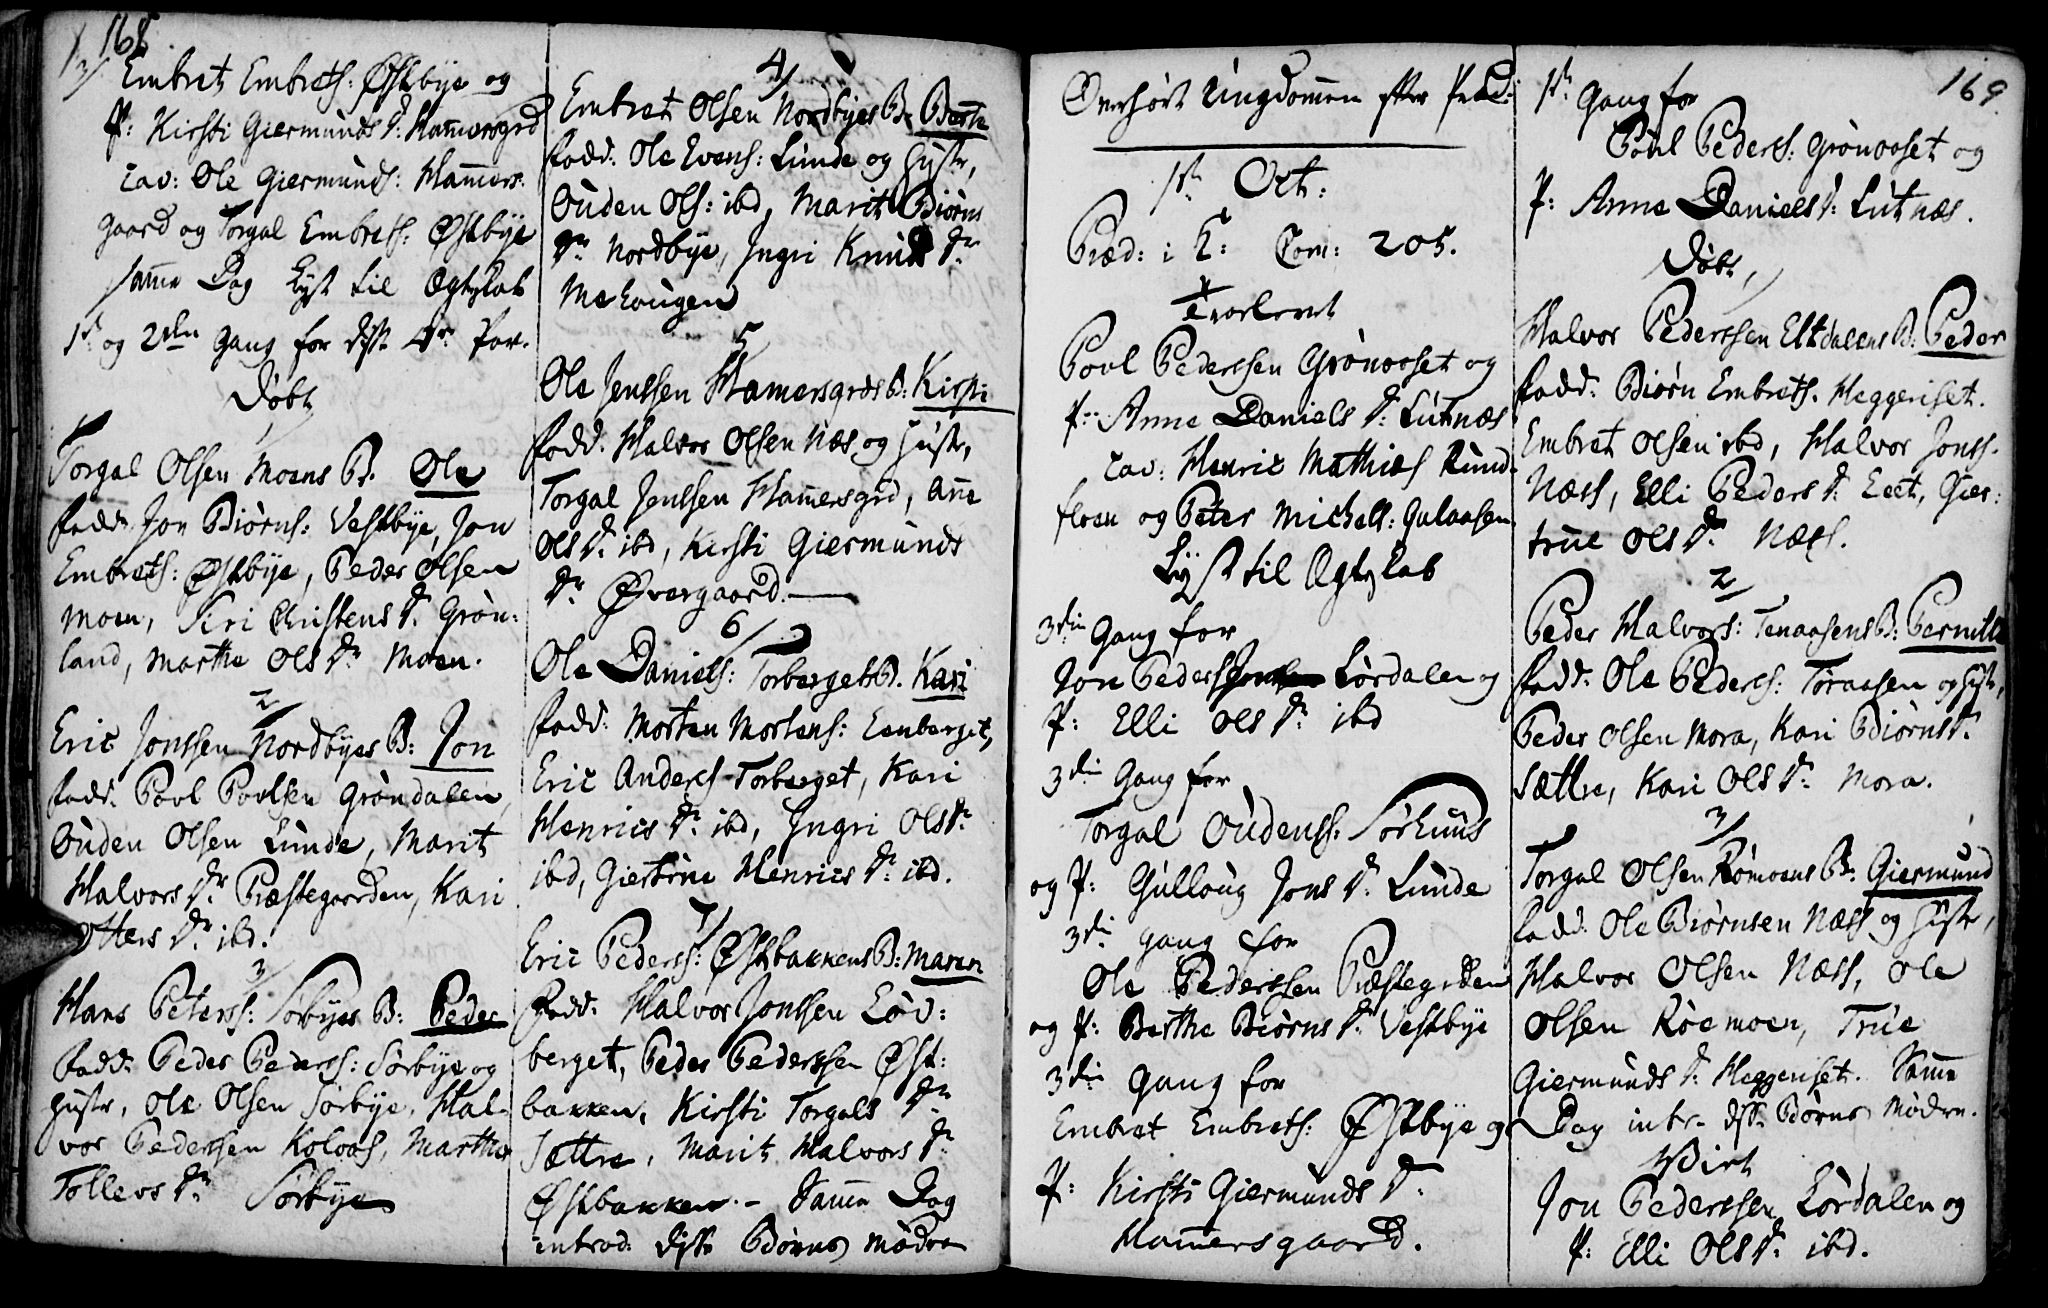 168.
3/ Embret Embrets: Østbye og
P: Kirsti Giermunds Dr: Hammersgrd
Cav: Ole Giermunds: Hammers:
gaard og Torgal Embrets: Østbye
samme Dag Lyst til Ægtskab
1st og 2den gang for disse 4re Par.
Døbt
1/
Torgal Olsen Moens B. Ole
fadd. Jon Biørns: Vestbye, Jon
Embrets: Østbye, Peder Olsen
Moen, Siri Christens Dr. Grøn:
land, Marthe Ols Dr. Moen.
2/
Eric Jonssen Nordbyes B: Jon
fadd. Povl Povlsen Grøndalen,
Ouden Olsen Lunde, Marit
Halvors Dr. Præstegaarden, Kari
Otters Dr. ibd.
3/
Hans Peterss: Sørbyes B: Peder
fadd: Peder Pederss: Sørbye og
Hustr, Ole Olsen Sørbye, Hal-
vor Pederssen Koloas, Marthe
Tollevs Dr. Sørbye
4/
Embret Olsen Nordbyes B: Berte
fadd: Ole Evens: Lunde og Hustr,
Ouden Ols: ibd, Marit Biørns
Dr. Nordbye, Ingri Knuds Dr.
Melougen
5/
Ole Jenssen Hamersgrds B: Kirsti
fadd. Halvor Olsen Næs og Hustr,
Torgal Jenssen Hamersgrd, Anne
Ols Dr. ibd, Kirsti Giermunds
Dr. Øvergaard.
6/
Ole Daniels: Torbergets B. Kari
fadd: Morten Mortens: Lenberget,
Eric Anderss Torberget, Kari
Henrics Dr. ibd, Ingri Ols Dr.
ibd, Giertrue Henrics Dr. ibd.
7/
Eric Pederss: Østbakkens B: Maren
fadd. Halvor Jonssen Løv:
berget, Peder Pederssen Øst:
bakken, Kirsti Torgals Dr
Sættre, Marit Halvors Dr
Østbakken. - Samme Dag
introd. disse Børns Mødre
Overhørt Ungdommen efter Præd:
1st Oct:
Præd: i K: Com: 205.
Trolovet
Povl Pederssen Grønoset og
P: Anne Daniels Dr: Lutnæs
Cav: Henric Mathies Rund-
floen og Peter Michels: Galaasen
Lyst til Ægtskab
3die Gang for
Jon Peders Lørdalen og
P: Elli Ols Dr. ibd
3die Gang for
Torgal Oudenss: Sørhuus
og P: Gulloug Jons Dr. Lunde
3die gang for
Ole Pederssen Præstegrden
og P: Berthe Biørns Dr. Vestbye
3die gang for
Embret Embrets: Østbye og
P: Kirsti Giermunds Dr.
Hammersgaard.
169
1st Gang for
Povl Pederss: Grønoset og
P: Anne Daniels Dr: Lutnæs.
Døbt
1/
Halvor Pederssen Eltdalens B: Peder
fadd: Biørn Embrets. Heggeriset.
Embret Olsen ibd, Halvor Jonss.
Næss, Elli Peders Dr. Eeet, Gier:
true Ols Dr. Næss.
2/
Peder Halvors: Tenaasens B: Pernille
fadd. Ole Pederss: Toraasen og Hustr,
Peder Olsen Mora, Kari Biørns Dr.
Sættre, Kari Ols Dr. Mora.
3/
Torgal Olsen Rømoens B: Giermund
fadd. Ole Biørnsen Næss og Hustr,
Halvor Olsen Næss, Ole
Olsen Röemoen, True
Giermunds Dr. Heggeriset. Samme
Dag intr. disse Børns Mødre.
Viet
Jon Pederssen Lørdalen og
P: Elli Ols Dr. ibd.